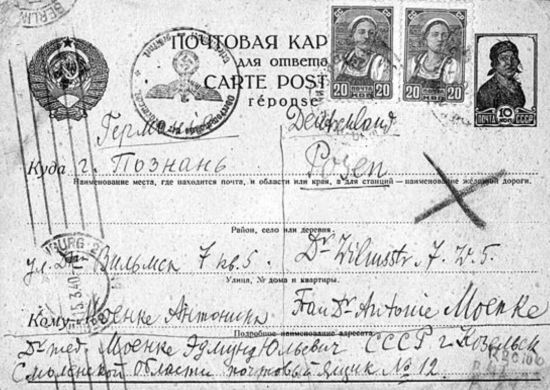 BERLIN
ПОЧТОВАЯ КАР
для ответа
CARTE POST
réponse
20 ПОЧТА СССР 20
20 ПОЧТА СССР 20
ПОЧТА 10 КОП. СССР
Германия Deutschland
Куда г. Познань Posen
Наименование места, где находится почта, и области или края, а для станций — наименование железной дороги.
Район, село или деревня.
ул. Вильмск 7 кв. 5. Dr Wilmsstr. 7. W. 5.
Улица, № дома и квартиры.
Кому Моенке Антонине Frau Dr Antonie Moenke
Подробное наименование адресата.
Dr med. Моенке Эдмунд Юльевич СССР г. Козельск
Смоленской области почтовый ящик № 12.